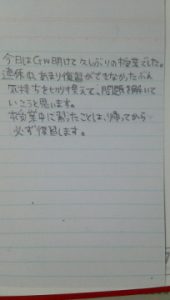 今日はGW明けて久しぶりの授業でした。
連休中、あまり復習ができなかったぶん
気持ちを切り替えて、問題を解いて
いこうと思います。
授業中に習ったことは、帰ってから
必ず復習します。